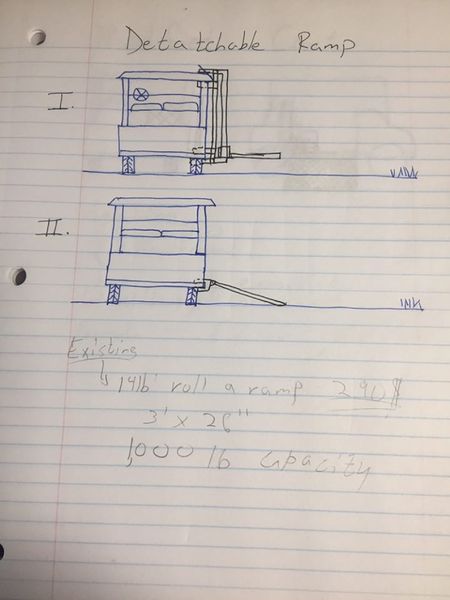 Detatchable Ramp
I.
II.
Existing
14lb roll a ramp 290$
3' x 26"
1,000 lb capacity